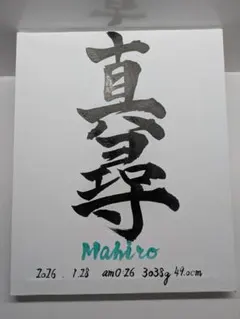 真尋
Mahiro
2026.1.28 am0:26 3038g 49.0cm